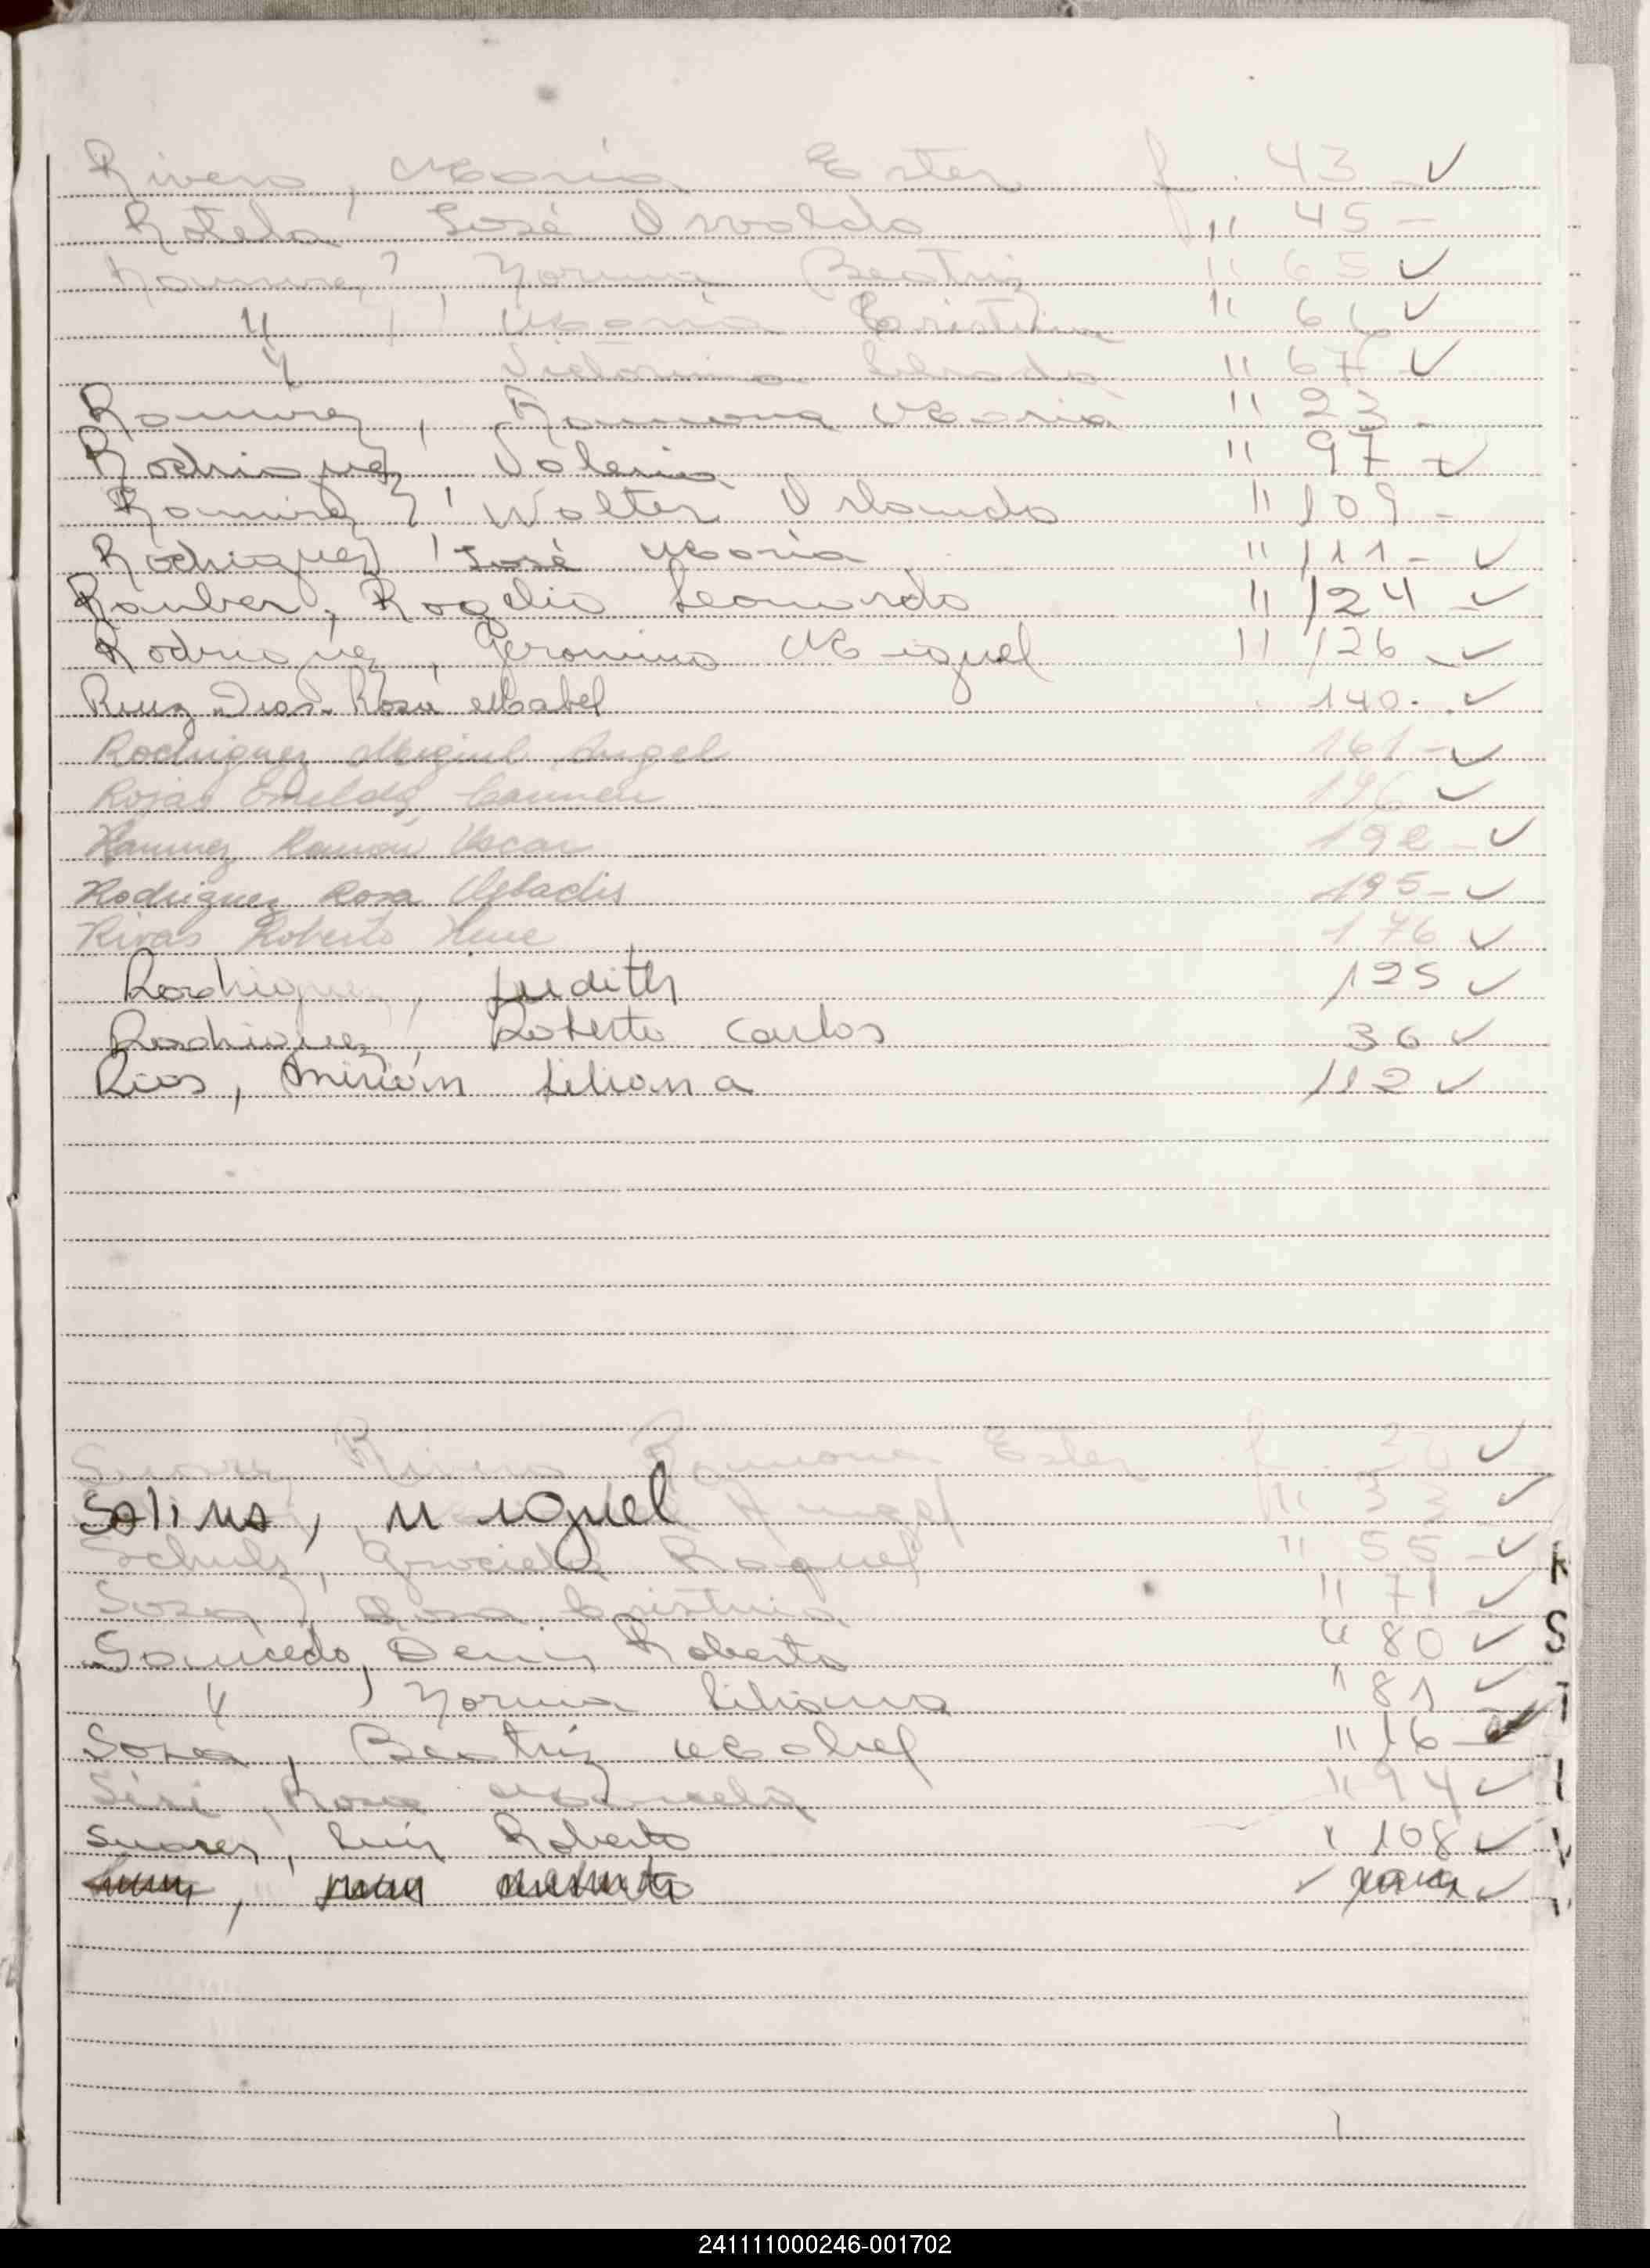 Rivero, María Ester f. 43 - ✓
Rotela José Osvaldo " 45 -
Ramirez, Norma Beatriz " 65 ✓
" , María Cristina " 66 ✓
" Victorina Librada " 67 ✓
Ramirez, Ramona María " 23 -
Rodriguez Valeria " 97 - ✓
Ramirez, Walter Orlando " 109 -
Rodriguez, José María " 111 - ✓
Rauber, Rogelio Leonardo " 124 - ✓
Rodriguez, Geronimo Miguel " 126 - ✓
Ruiz Dias Rosa Mabel 140 - ✓
Rodriguez Miguel Angel 161 - ✓
Rojas Emelda Carmen ✓
Ramirez Ramón Oscar 192 - ✓
Rodriguez Rosa 195 - ✓
Rivas Roberto Rene 176 ✓
Rodriguez, Judith 125 ✓
Rodriguez, Roberto Carlos 36 ✓
Rios, Mirián Liliana 112 ✓
Suarez Rivero Ramona Ester f. ✓
Salinas, Miguel Angel " 33 ✓
Schulz, Graciela Raquel " 55 - ✓
Sosa, Rosa Cristina " 71 ✓
Saucedo, Denis Roberto " 80 ✓
" , Norma Liliana " 81 ✓
Sosa, Beatriz Mabel " 16 - ✓
Sisi, Rosa Marcela " 94 ✓
Suarez, Luis Roberto " 108 ✓
R
S
T
V
241111000246-001702